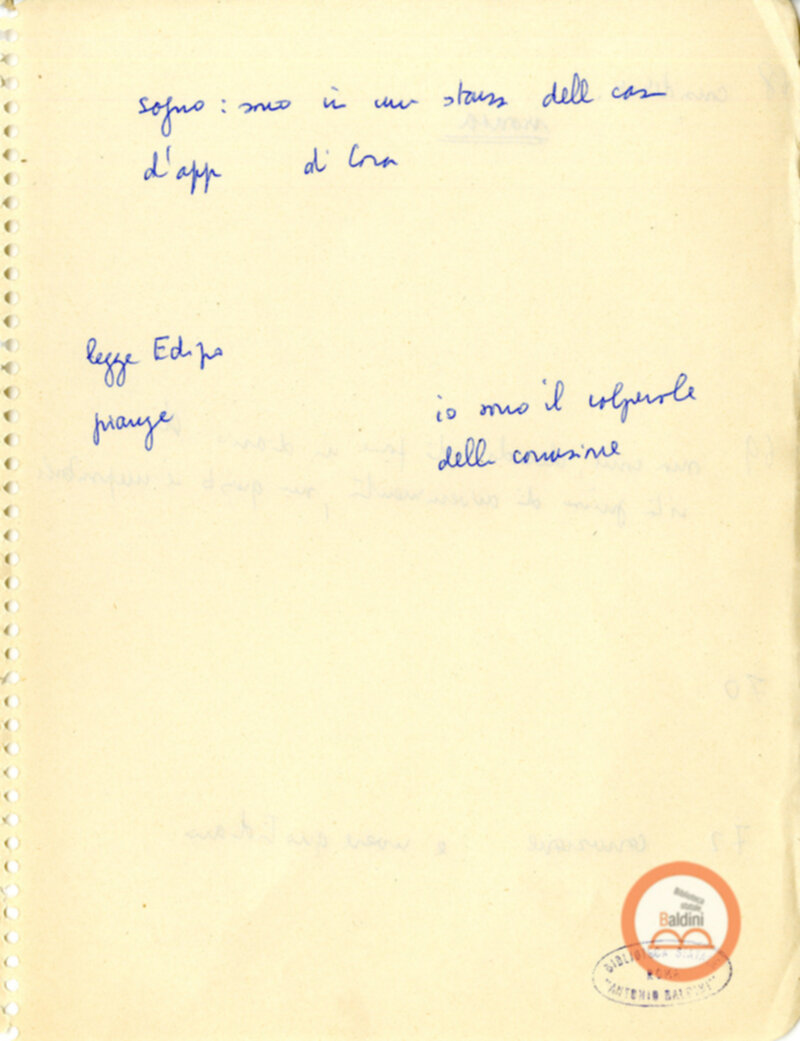 sogno: sono in una stanza della casa
d'app di Cora
legge Edipo
piange
io sono il colpevole
della corruzione
Biblioteca
statale
Baldini
BIBLIOTECA STATALE
ROMA
"ANTONIO BALDINI"